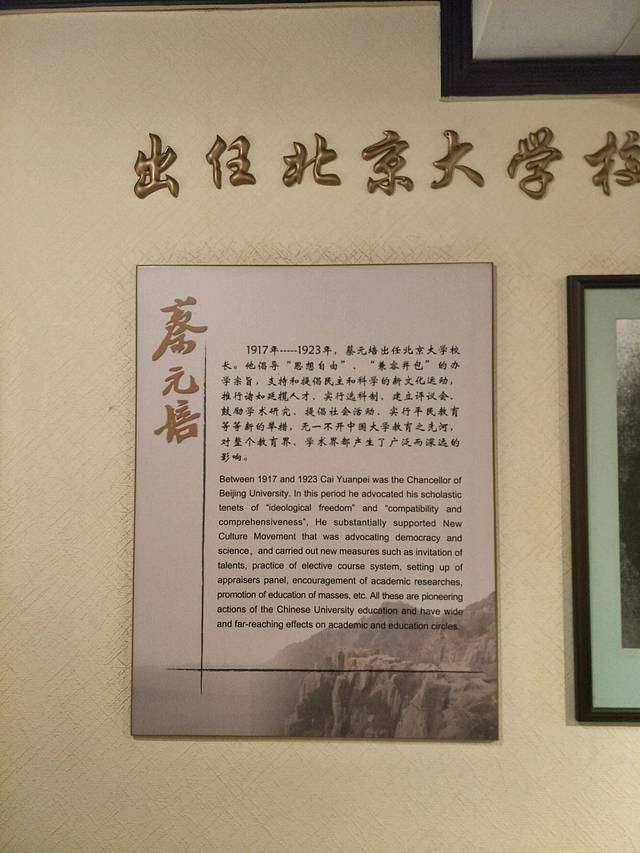 出任北京大学校
蔡元培
1917年-----1923年，蔡元培出任北京大学校
长。他倡导“思想自由”、“兼容并包”的办
学宗旨，支持和提倡民主和科学的新文化运动，
推行诸如延揽人才、实行选科制、建立评议会、
鼓励学术研究、提倡社会活动、实行平民教育
等等新的举措，无一不开中国大学教育之先河，
对整个教育界、学术界都产生了广泛而深远的
影响。
Between 1917 and 1923 Cai Yuanpei was the Chancellor of
Beijing University. In this period he advocated his scholastic
tenets of “ideological freedom” and “compatibility and
comprehensiveness”, He substantially supported New
Culture Movement that was advocating democracy and
science, and carried out new measures such as invitation of
talents, practice of elective course system, setting up of
appraisers panel, encouragement of academic researches,
promotion of education of masses, etc. All these are pioneering
actions of the Chinese University education and have wide
and far-reaching effects on academic and education circles.